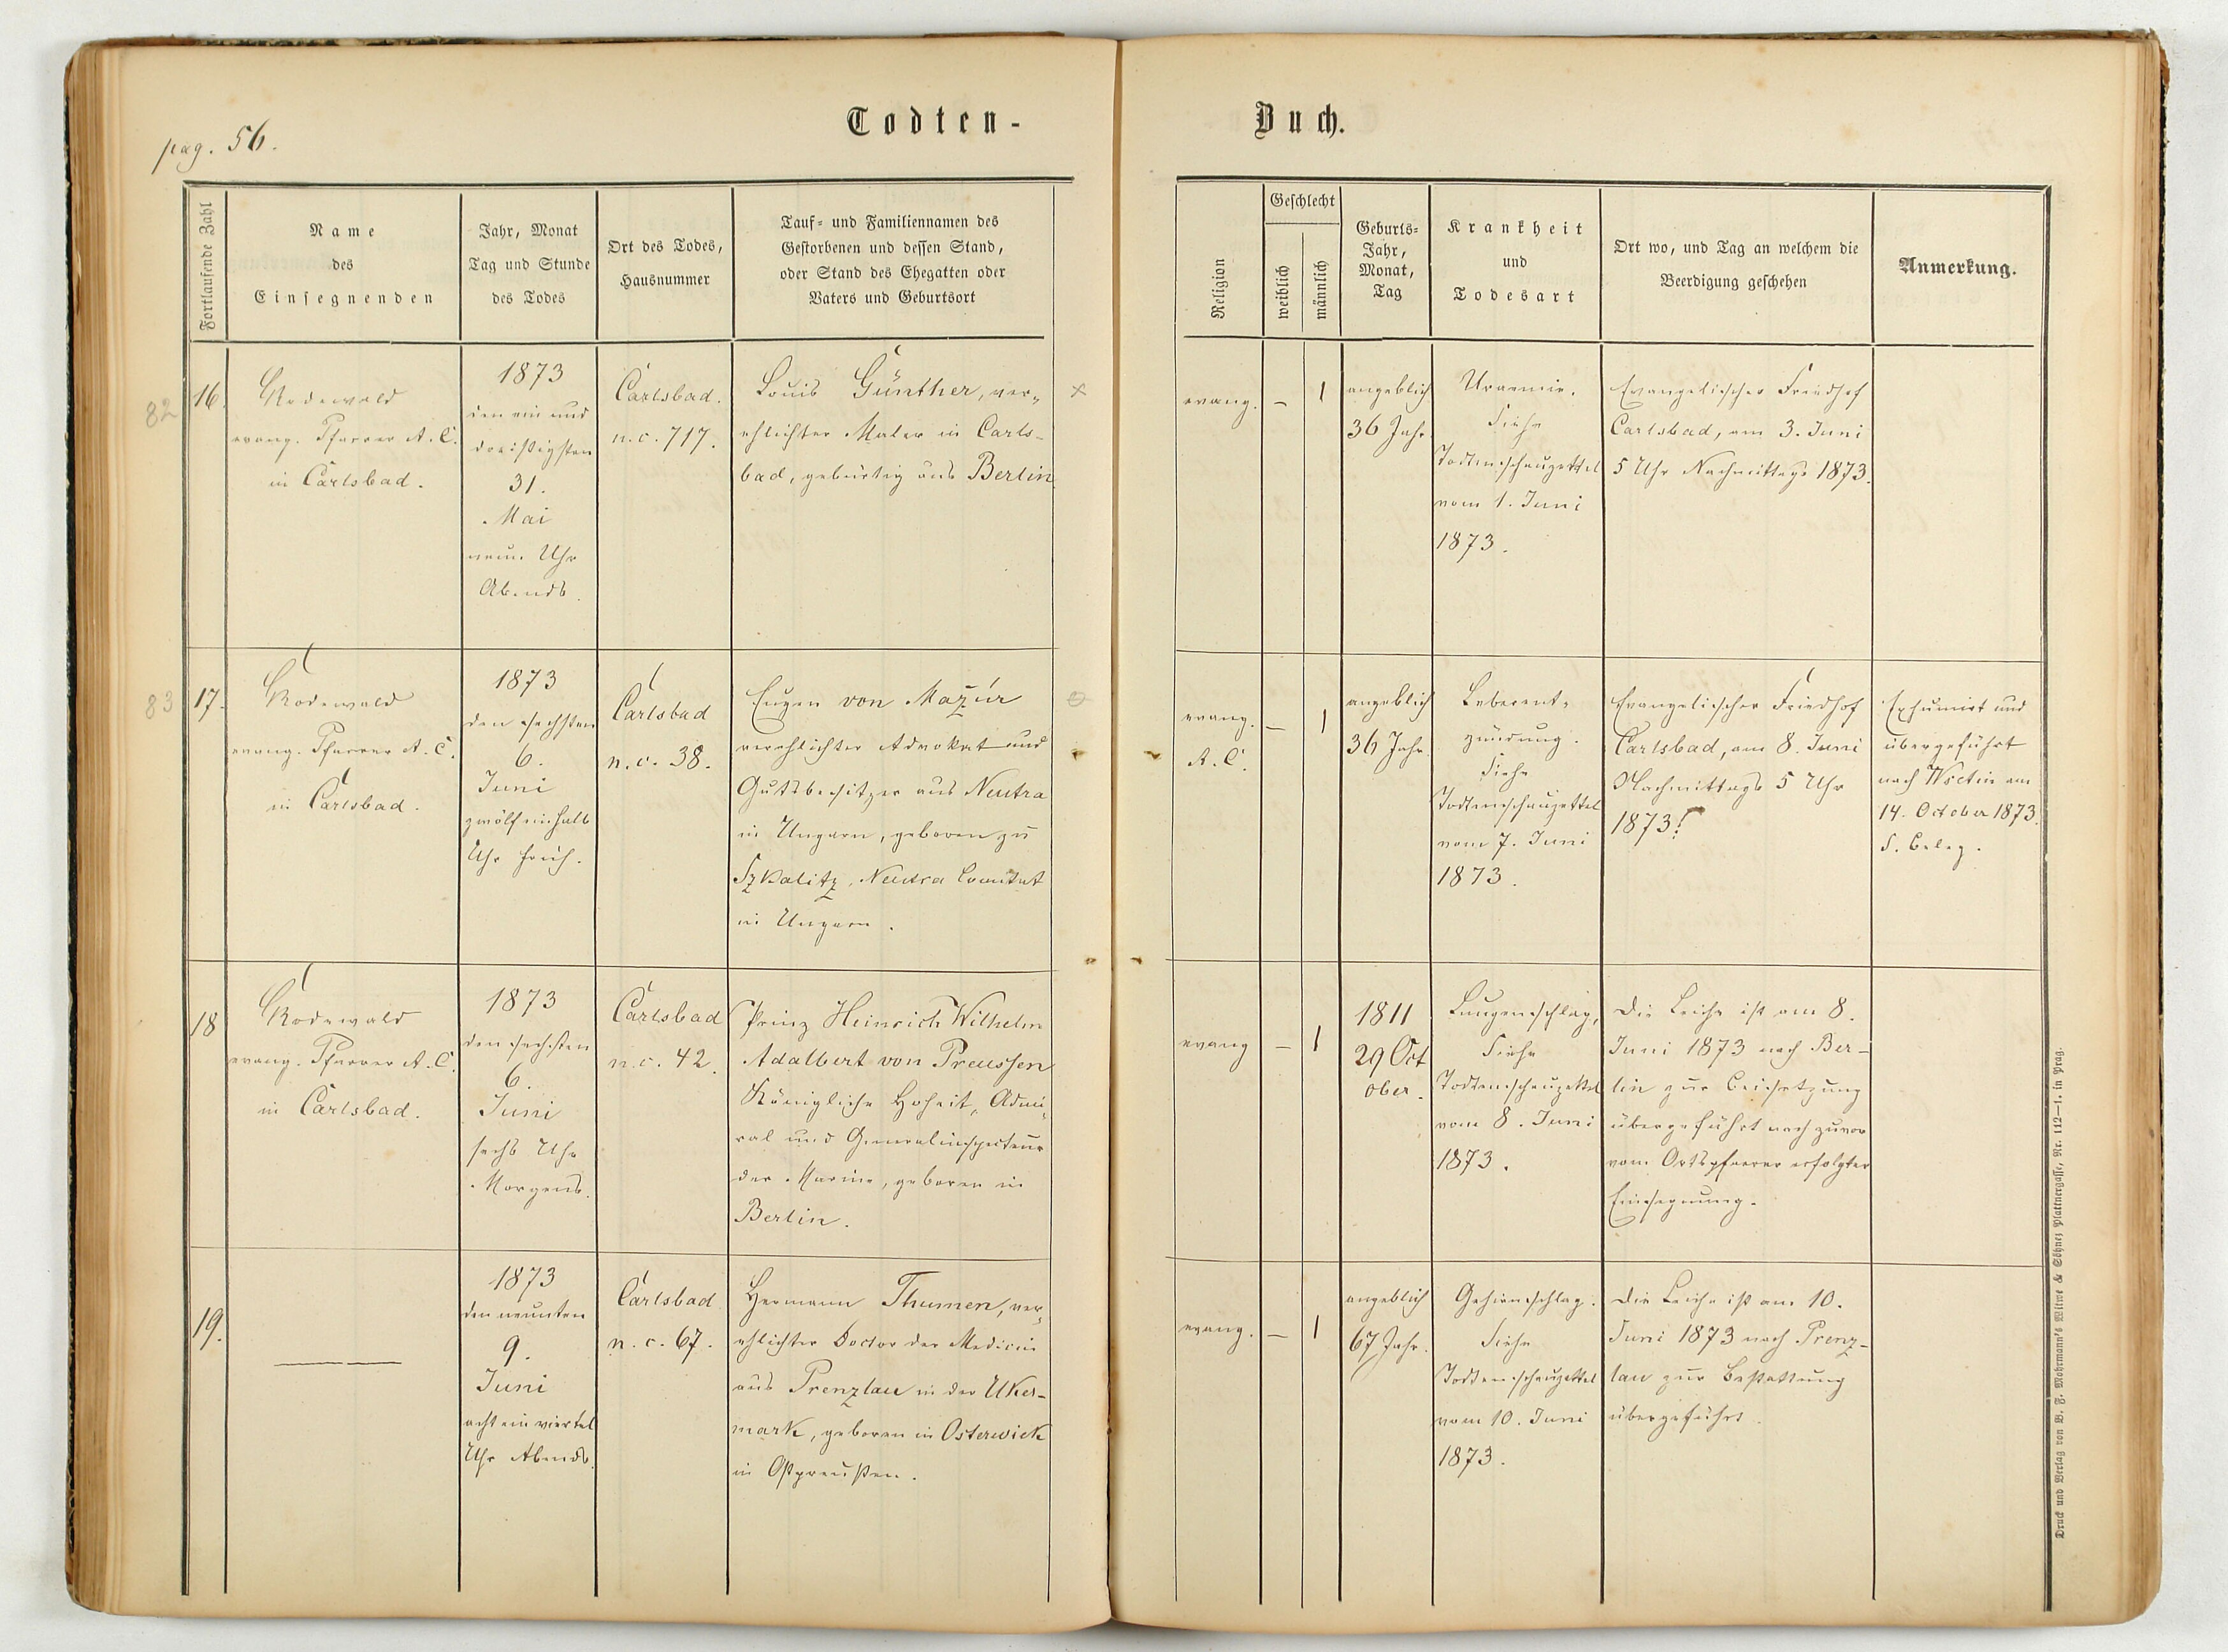 pag. 56.
Todten-
Buch.
Fortlaufende Zahl
Name
des
Einsegnenden
Jahr, Monat
Tag und Stunde
des Todes
Ort des Todes,
Hausnummer
Tauf= und Familiennamen des
Gestorbenen und dessen Stand,
oder Stand des Ehegatten oder
Vaters und Geburtsort
Religion
Geschlecht
weiblich
männlich
Geburts=
Jahr,
Monat,
Tag
Krankheit
und
Todesart
Ort wo, und Tag an welchem die
Beerdigung geschehen
Anmerkung.
82
16.
Rodewald
evang. Pfarrer A. C.
in Carlsbad.
1873
den ein und
dreißigsten
31.
Mai
neun Uhr
Abends.
Carlsbad.
n. c. 717.
Louis Günther, ver=
ehlichter Maler in Carls-
bad, gebürtig aus Berlin.
evang.
–
1
angeblich
36 Jahr.
Uraemie.
Siehe
Todtenschauzettel
vom 1. Juni
1873.
Evangelischer Friedhof
Carlsbad, am 3. Juni
5 Uhr Nachmittags 1873.
83
17.
Rodewald
evang. Pfarrer A. C.
in Carlsbad.
1873
den sechsten
6.
Juni
zwölfeinhalb
Uhr früh.
Carlsbad
n. c. 38.
Eugen von Mazúr
verehlichter Advokat und
Gutsbesitzer aus Neutra
in Ungarn, geboren zu
Szkalitz, Neutra Comitat
in Ungarn.
evang.
A. C.
–
1
angeblich
36 Jahr.
Leberent=
zündung.
Siehe
Todtenschauzettel
vom 7. Juni
1873.
Evangelischer Friedhof
Carlsbad, am 8. Juni
Nachmittags 5 Uhr
1873.
Exhumirt und
übergeführt
nach Wsetin am
14. October 1873.
S. Beleg.
18
Rodewald
evang. Pfarrer A. C.
in Carlsbad.
1873
den sechsten
6.
Juni
sechs Uhr
Morgens.
Carlsbad
n. c. 42.
Prinz Heinrich Wilhelm
Adalbert von Preussen
Königliche Hoheit, Admi=
ral und Generalinspecteur
der Marine, geboren in
Berlin.
evang
–
1
1811
29 Oct
ober.
Lungenschlag,
Siehe
Todtenschauzettel
vom 8. Juni
1873.
Die Leiche ist am 8.
Juni 1873 nach Ber-
lin zur Beisetzung
übergeführt nach zuvor
vom Ortspfarrer erfolgter
Einsegnung.
19.
1873
den neunten
9.
Juni
acht ein viertel
Uhr Abends.
Carlsbad
n. c. 67.
Hermann Thumen, ver=
ehlichter Doctor der Medicin
aus Prenzlau in der Uker-
mark, geboren in Osterwick
in Ostpreußen.
evang.
–
1
angeblich
67 Jahr.
Gehirnschlag.
Siehe
Todtenschauzettel
vom 10. Juni
1873.
Die Leiche ist am 10.
Juni 1873 nach Prenz-
lau zur Bestattung
übergeführt.
Druck und Verlag von B. F. Mohrmann's Witwe & Söhne, Plattnergasse, Nr. 112—1. in Prag.